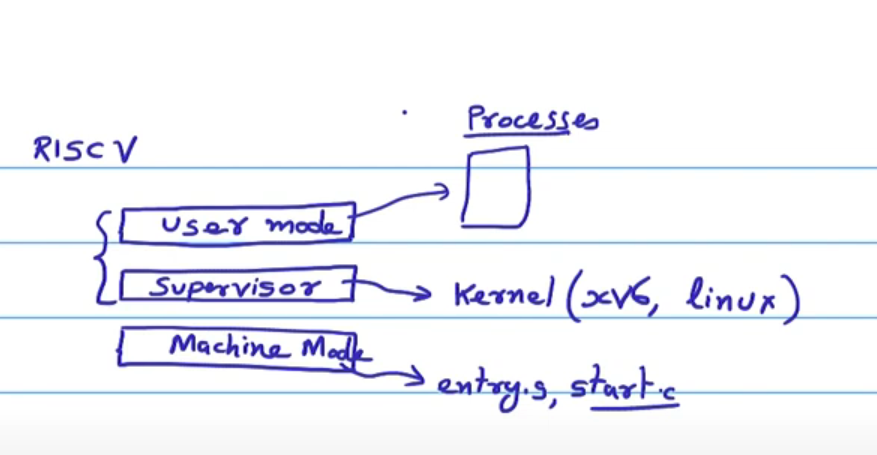 Processes
RISC V
User mode
Supervisor
Kernel (xv6, linux)
Machine Mode
entry.s, start.c